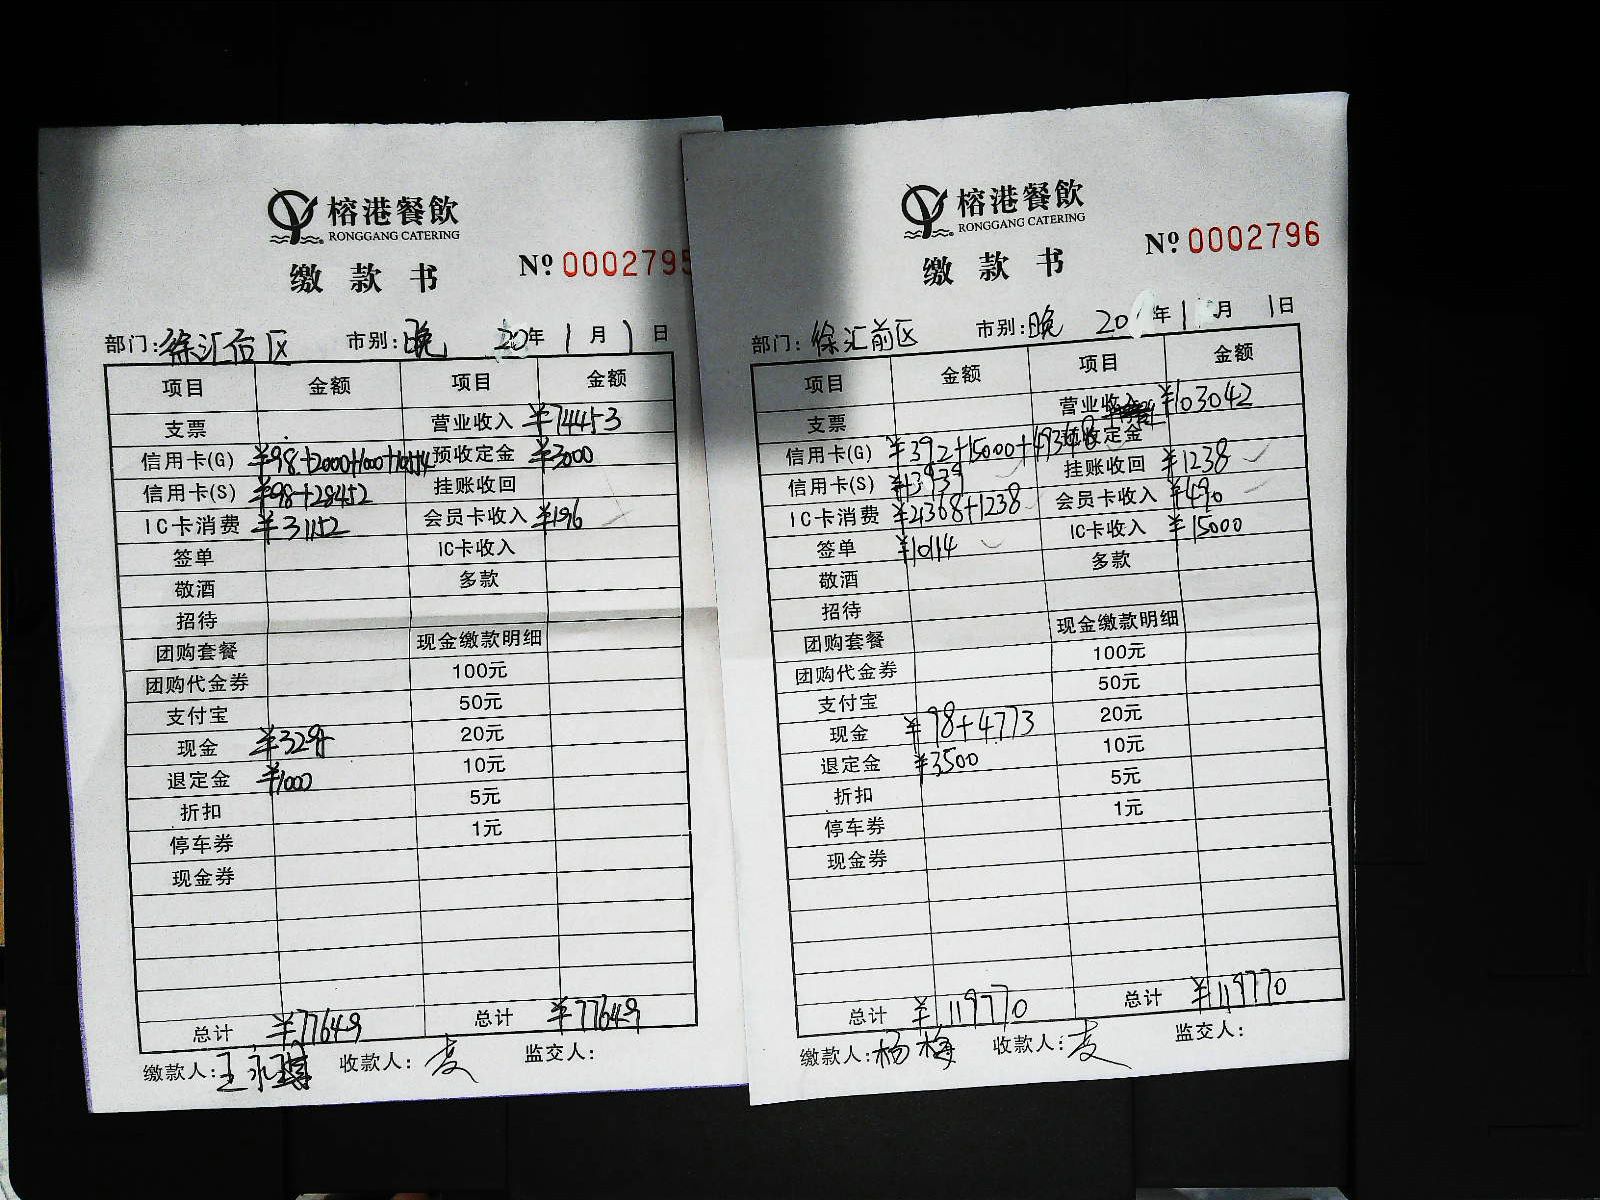 榕港餐飲
RONGGANG CATERING
缴款书
Nº 0002795
部门:徐汇后区 市别:晚 20年1月1日
项目 金额 项目 金额
支票 营业收入 ¥74453
信用卡(G) ¥98+2000+1000+10554 预收定金 ¥3000
信用卡(S) ¥98+28452 挂账收回
IC卡消费 ¥31152 会员卡收入 ¥196
签单 IC卡收入
敬酒 多款
招待
团购套餐 现金缴款明细
团购代金券 100元
支付宝 50元
现金 ¥3295 20元
退定金 ¥1000 10元
折扣 5元
停车券 1元
现金券
总计 ¥77649 总计 ¥77649
缴款人:王 收款人:麦 监交人:
榕港餐飲
RONGGANG CATERING
缴款书
Nº 0002796
部门:徐汇前区 市别:晚 20 年1月1日
项目 金额 项目 金额
支票 营业收入 ¥103042
信用卡(G) ¥392+15000+49348 预收定金
信用卡(S) ¥13939 挂账收回 ¥1238
IC卡消费 ¥21368+1238 会员卡收入 ¥490
签单 ¥10114 IC卡收入 ¥15000
敬酒 多款
招待
团购套餐 现金缴款明细
团购代金券 100元
支付宝 50元
现金 ¥98+4773 20元
退定金 ¥3500 10元
折扣 5元
停车券 1元
现金券
总计 ¥119770 总计 ¥119770
缴款人:杨梅 收款人:麦 监交人: